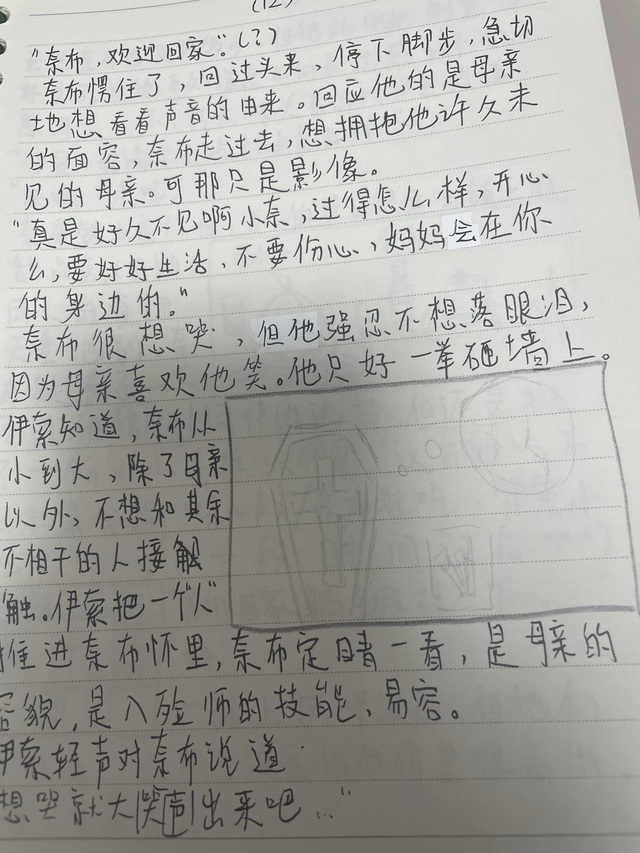 (12)
"奈布,欢迎回家"。(?)
奈布愣住了,回过头来,停下脚步,急切
地想看看声音的由来。回应他的是母亲
的面容,奈布走过去,想拥抱他许久未
见的母亲。可那只是影像。
"真是好久不见啊小奈,过得怎么样,开心
么,要好好生活,不要伤心,妈妈会在你
的身边的。"
奈布很想哭,但他强忍不想落眼泪,
因为母亲喜欢他笑。他只好一拳砸墙上。
伊索知道,奈布从
小到大,除了母亲
以外,不想和其余
不相干的人接触
触。伊索把一个"人"
推进奈布怀里,奈布定睛一看,是母亲的
容貌,是入殓师的技能,易容。
伊索轻声对奈布说道:
想哭就大哭声出来吧..."